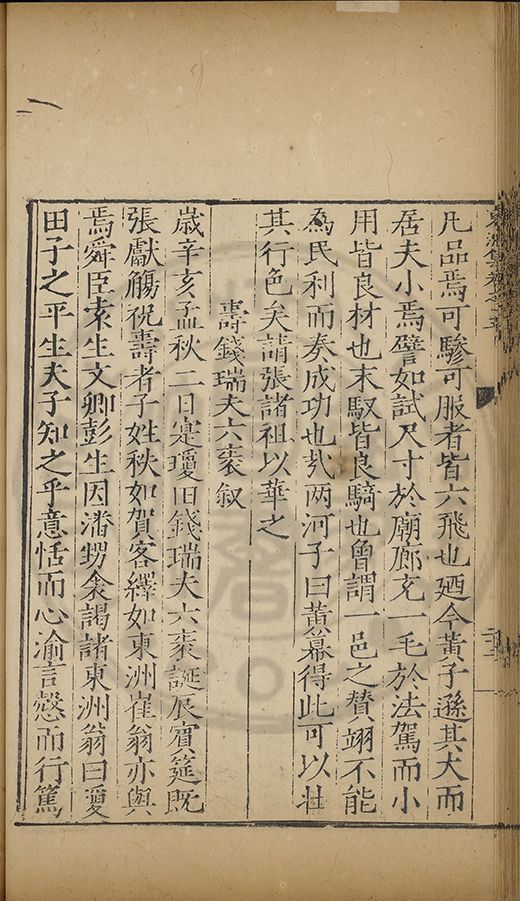 東洲集卷之十五
凡品焉可驂可服者皆六飛也廼今黃子遜其大而
居夫小焉譬如試尺寸於廟廊充一毛於法駕而小
用皆良材也末馭皆良騎也曾謂一邑之贊翊不能
為民利而奏成功也㢤两河子曰黃幕得此可以壮
其行色矣請張諸祖以華之
壽錢瑞夫六袠叙
歳辛亥孟秋二日寔瓊田錢瑞夫六袠誕辰賓筵既
張獻觴祝壽者子姓秩如賀客繹如東洲崔翁亦與
焉舜臣袁生文卿彭生因潘甥僉謁諸東洲翁曰瓊
田子之平生夫子知之乎意恬而心渝言慤而行篤